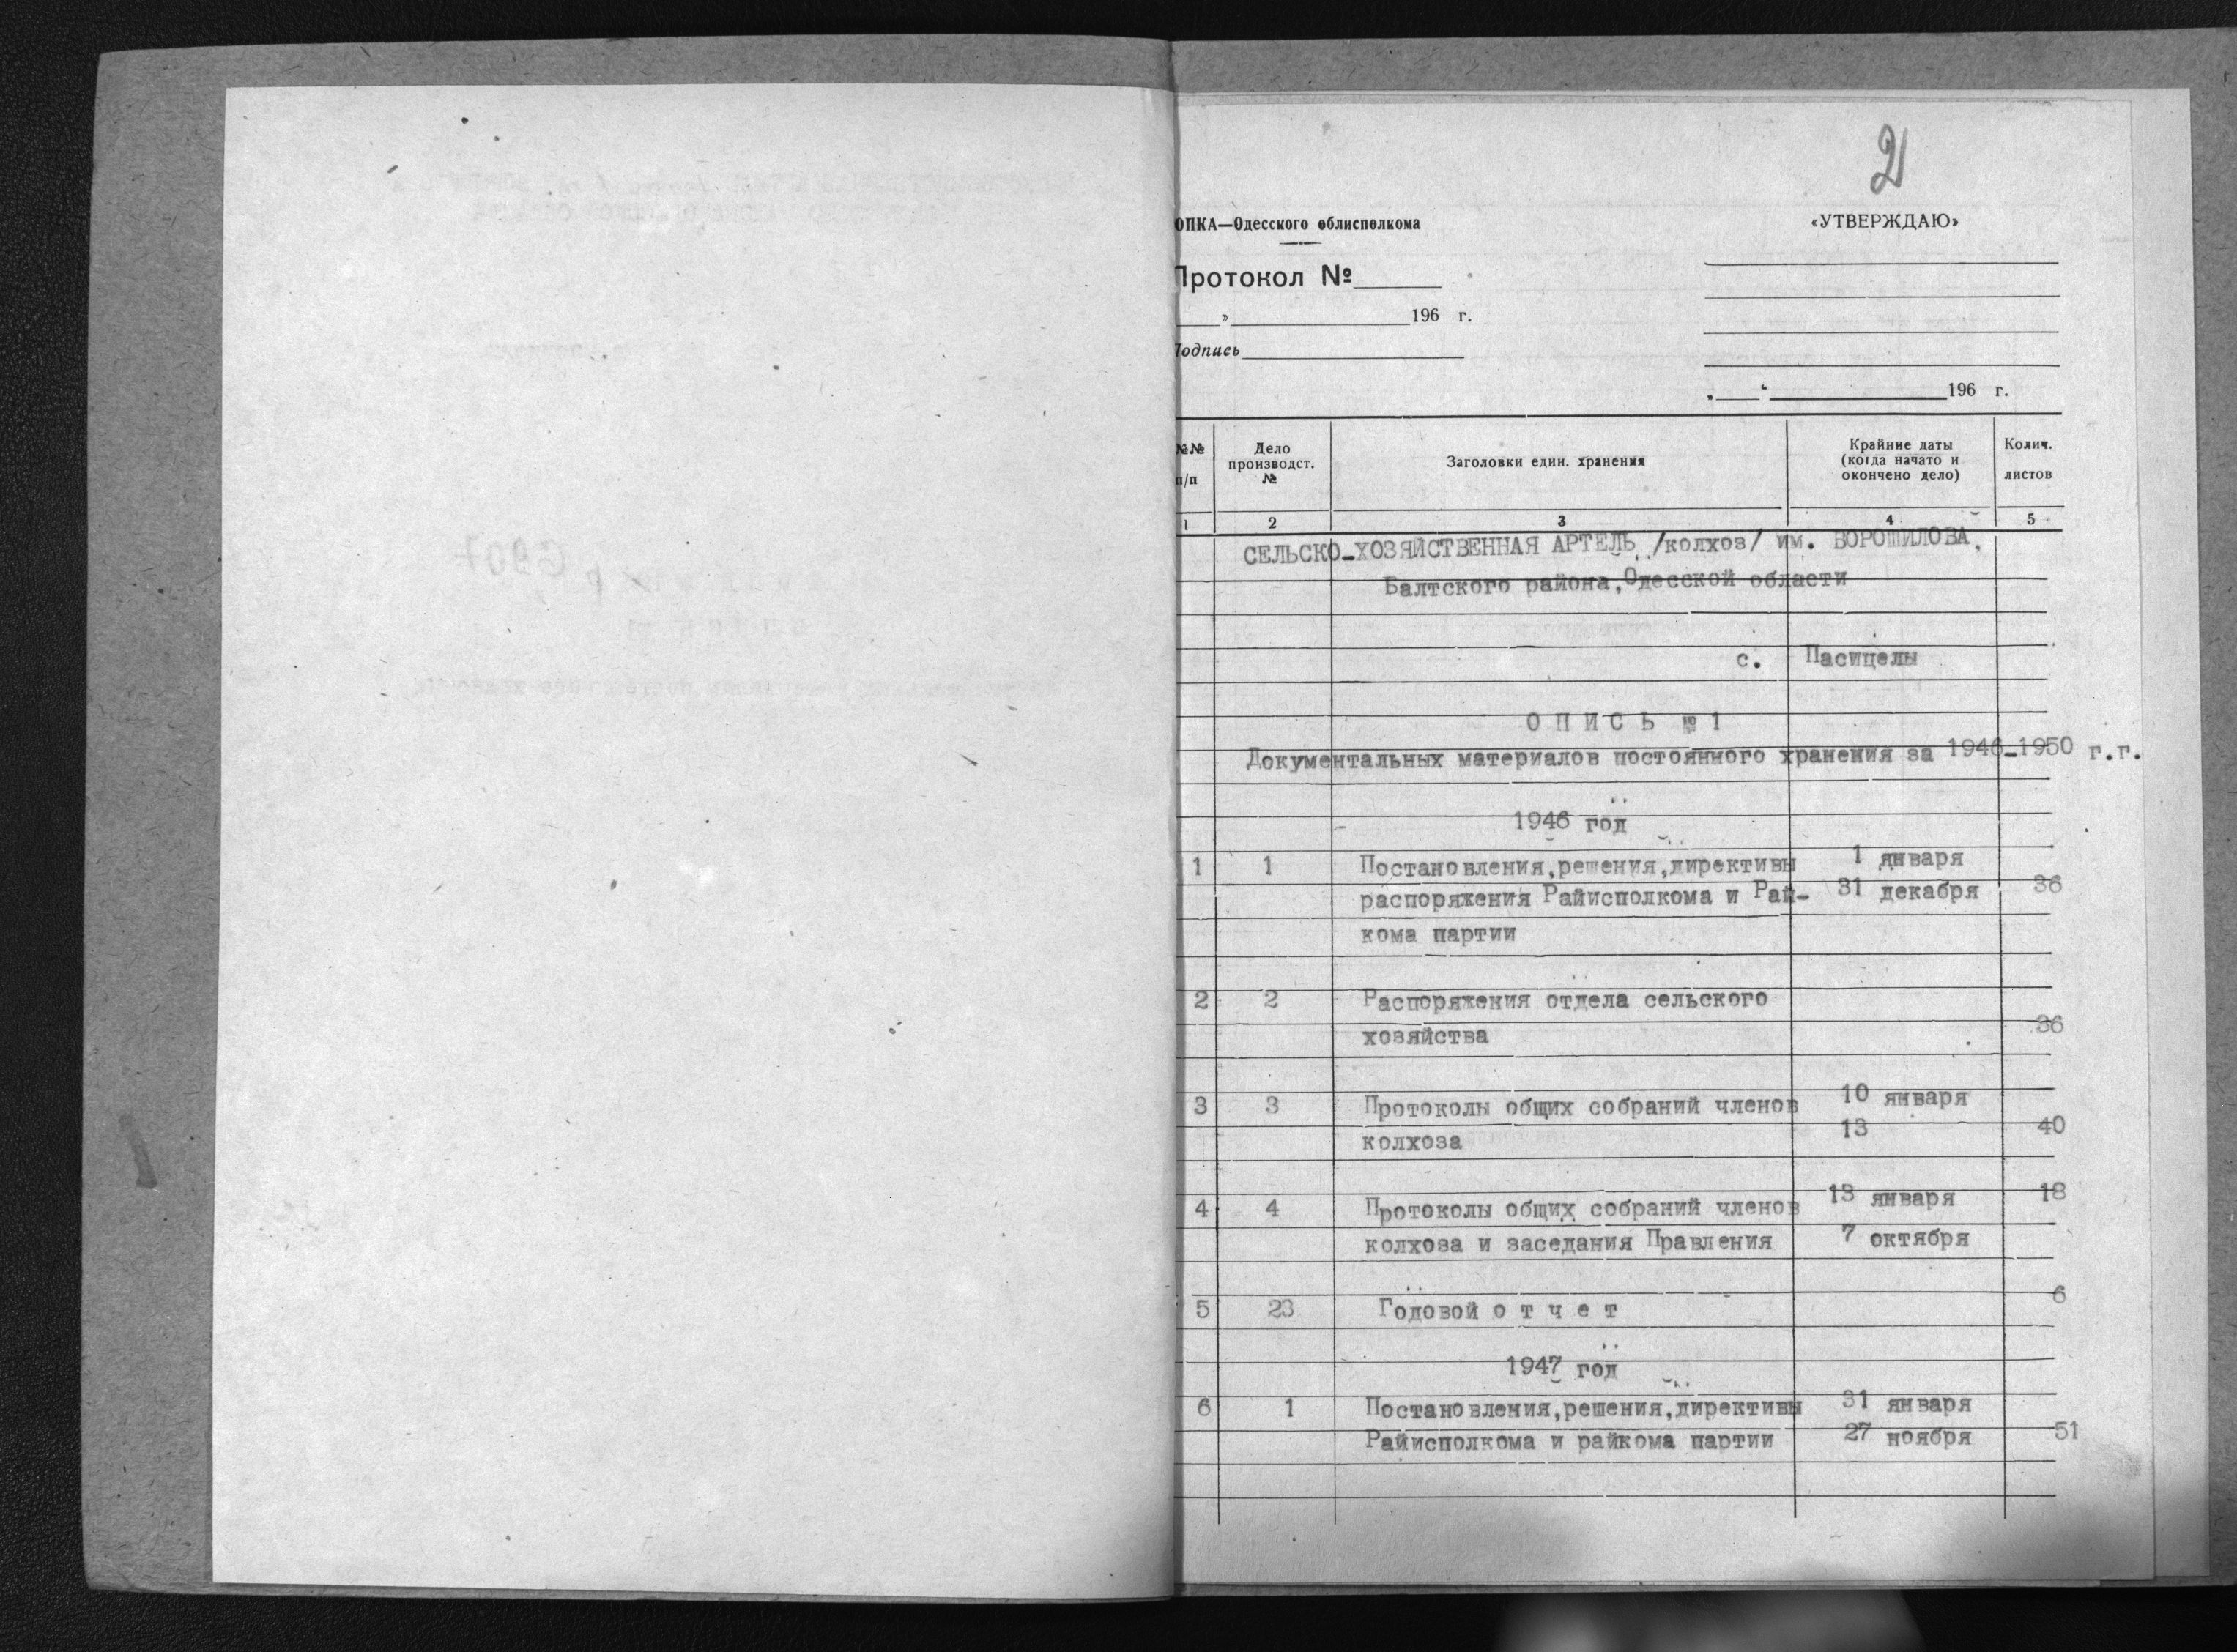 2
ОПКА—Одесского облисполкома
«УТВЕРЖДАЮ»
Протокол №
» 196 г.
Подпись
„ “ 196 г.
№№ п/п
Дело производст. №
Заголовки един. хранения
Крайние даты (когда начато и окончено дело)
Колич. листов
1 2 3 4 5
СЕЛЬСКО-ХОЗЯЙСТВЕННАЯ АРТЕЛЬ /колхоз/ им. ВОРОШИЛОВА,
Балтского района, Одесской области
с. Пасицелы
О П И С Ь № 1
Документальных материалов постоянного хранения за 1946-1950 г.г.
1946 год
1 1 Постановления,решения,директивы 1 января
распоряжения Райисполкома и Рай- 31 декабря 36
кома партии
2 2 Распоряжения отдела сельского
хозяйства 36
3 3 Протоколы общих собраний членов 10 января
колхоза 13 40
4 4 Протоколы общих собраний членов 13 января 18
колхоза и заседания Правления 7 октября
5 23 Годовой о т ч е т 6
1947 год
6 1 Постановления,решения,директивы 31 января
Райисполкома и райкома партии 27 ноября 51